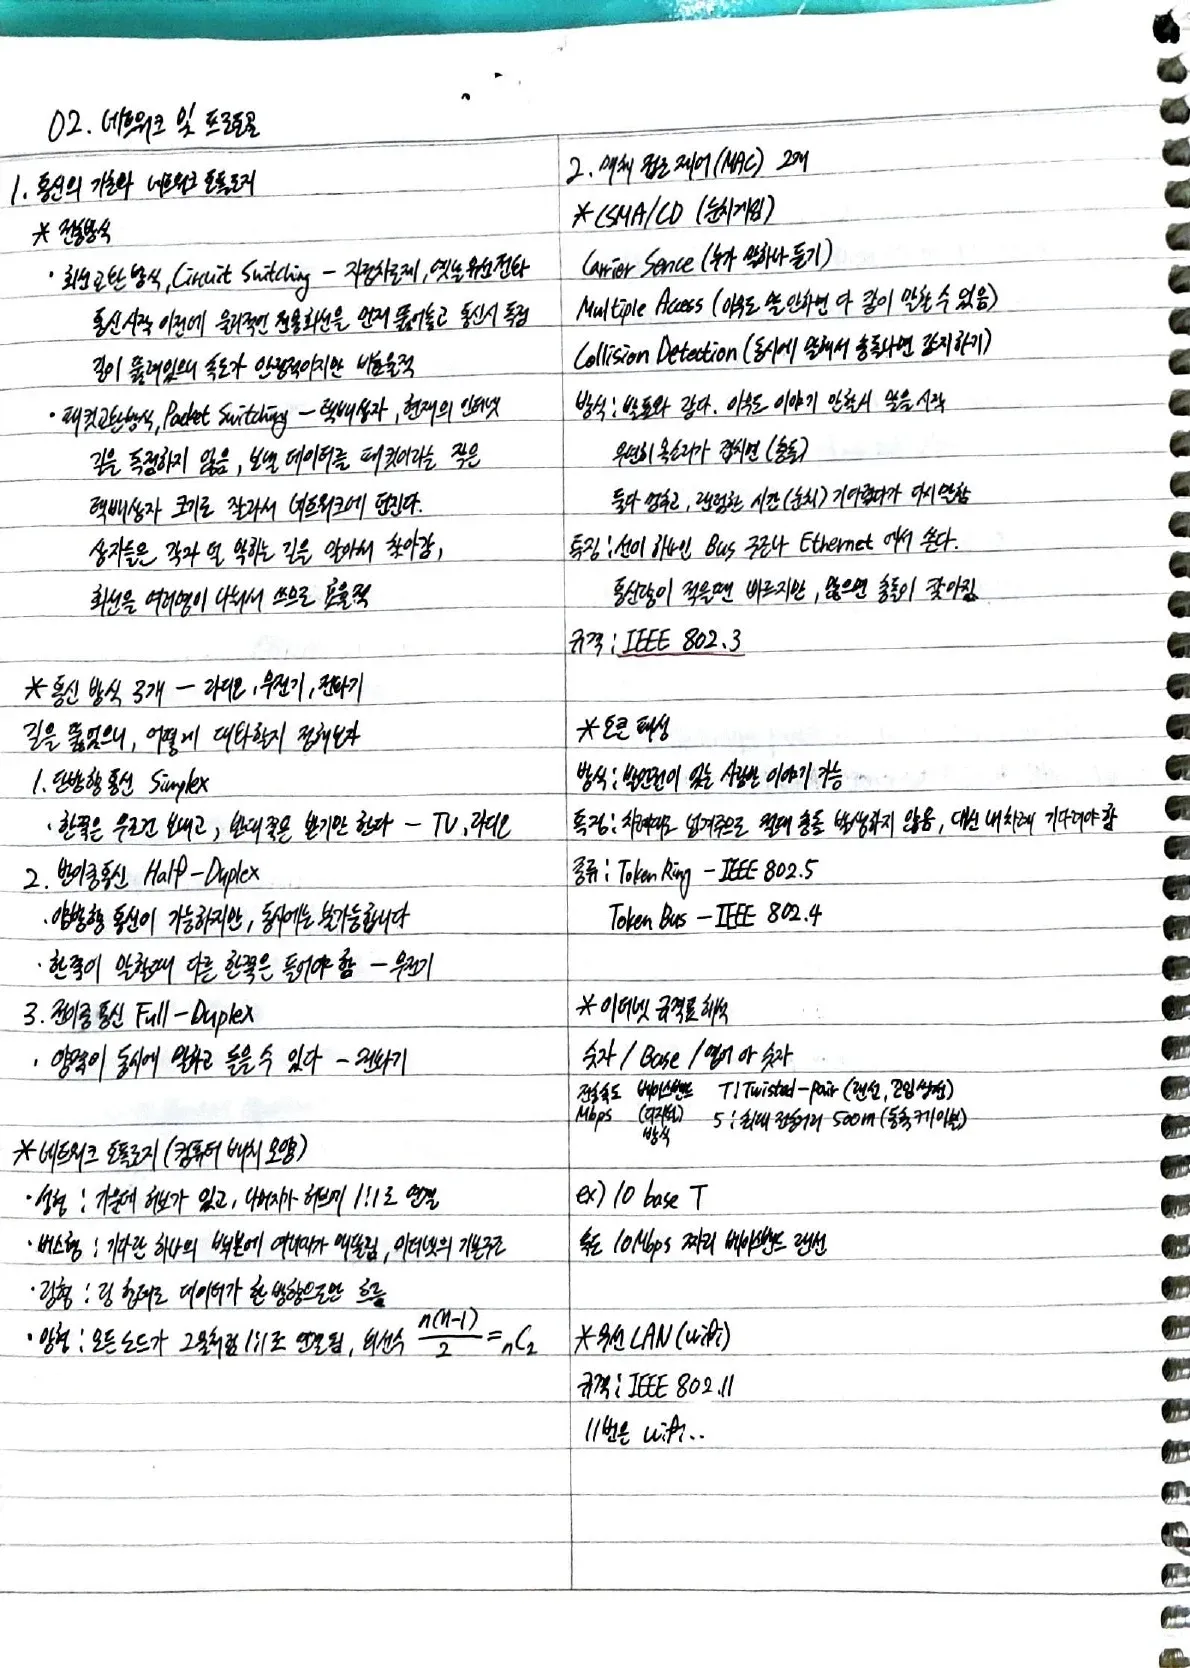 02. 네트워크 및 프로토콜
1. 통신의 기초와 네트워크 토폴로지
* 전송방식
· 회선교환 방식, Circuit Switching - 직접차로제, 옛날 유선전화
통신시작 이전에 물리적인 전용회선을 먼저 뚫어놓고 통신시 독점
길이 뚫려있으니 속도가 안정적이지만 비효율적
· 패킷교환방식, Packet Switching - 택배상자, 현재의 인터넷
길을 독점하지 않음, 보낼 데이터를 패킷이라는 작은
택배상자 크기로 잘라서 네트워크에 던진다.
상자들은 각자 덜 막히는 길을 알아서 찾아감,
회선을 여러명이 나눠서 쓰므로 효율적
* 통신 방식 3개 - 라디오, 무전기, 전화기
길을 뚫었으니, 어떻게 대화할지 정해보자
1. 단방향 통신 Simplex
· 한쪽은 무조건 보내고, 반대쪽은 받기만 한다 - TV, 라디오
2. 반이중통신 Half-Duplex
· 양방향 통신이 가능하지만, 동시에는 불가능합니다
· 한쪽이 말할때 다른 한쪽은 들어야 함 - 무전기
3. 전이중통신 Full-Duplex
· 양쪽이 동시에 말하고 들을 수 있다 - 전화기
* 네트워크 토폴로지 (컴퓨터 배치 모양)
· 성형 : 가운데 허브가 있고, 나머지가 허브에 1:1로 연결
· 버스형 : 기다란 하나의 백본에 여러대가 매달림, 이더넷의 기본구조
· 링형 : 링 형태로 데이터가 한 방향으로만 흐름
· 망형 : 모든 노드가 그물처럼 1:1로 연결됨, 회선수 n(n-1)/2 = nC2
2. 매체 접근 제어 (MAC) 2개
* CSMA/CD (눈치게임)
Carrier Sence (누가 말하나 듣기)
Multiple Access (아무도 말 안하면 다 같이 말할 수 있음)
Collision Detection (동시에 말해서 충돌나면 감지하기)
방식 : 발표와 같다. 아무도 이야기 안할시 말을 시작
우연히 목소리가 겹치면 (충돌)
둘다 멈추고, 랜덤한 시간 (눈치) 기다렸다가 다시말함
특징 : 선이 하나인 Bus 구조나 Ethernet 에서 쓴다.
통신량이 적을땐 빠르지만, 많으면 충돌이 잦아짐
규격 : IEEE 802.3
* 토큰 패싱
방식 : 발언권이 있는 사람만 이야기 가능
특징 : 차례대로 넘겨주므로 절대 충돌 발생하지 않음, 대신 내 차례 기다려야 함
종류 : Token Ring - IEEE 802.5
Token Bus - IEEE 802.4
* 이더넷 규격표 해석
숫자 / Base / 영어 or 숫자
전송속도 베이스밴드 T : Twisted-pair (랜선, 꼬임쌍선)
Mbps (디지털) 5 : 최대 전송거리 500m (동축케이블)
방식
ex) 10 base T
속도 10Mbps 짜리 베이스밴드 랜선
* 무선 LAN (wifi)
규격 : IEEE 802.11
11번은 wifi..